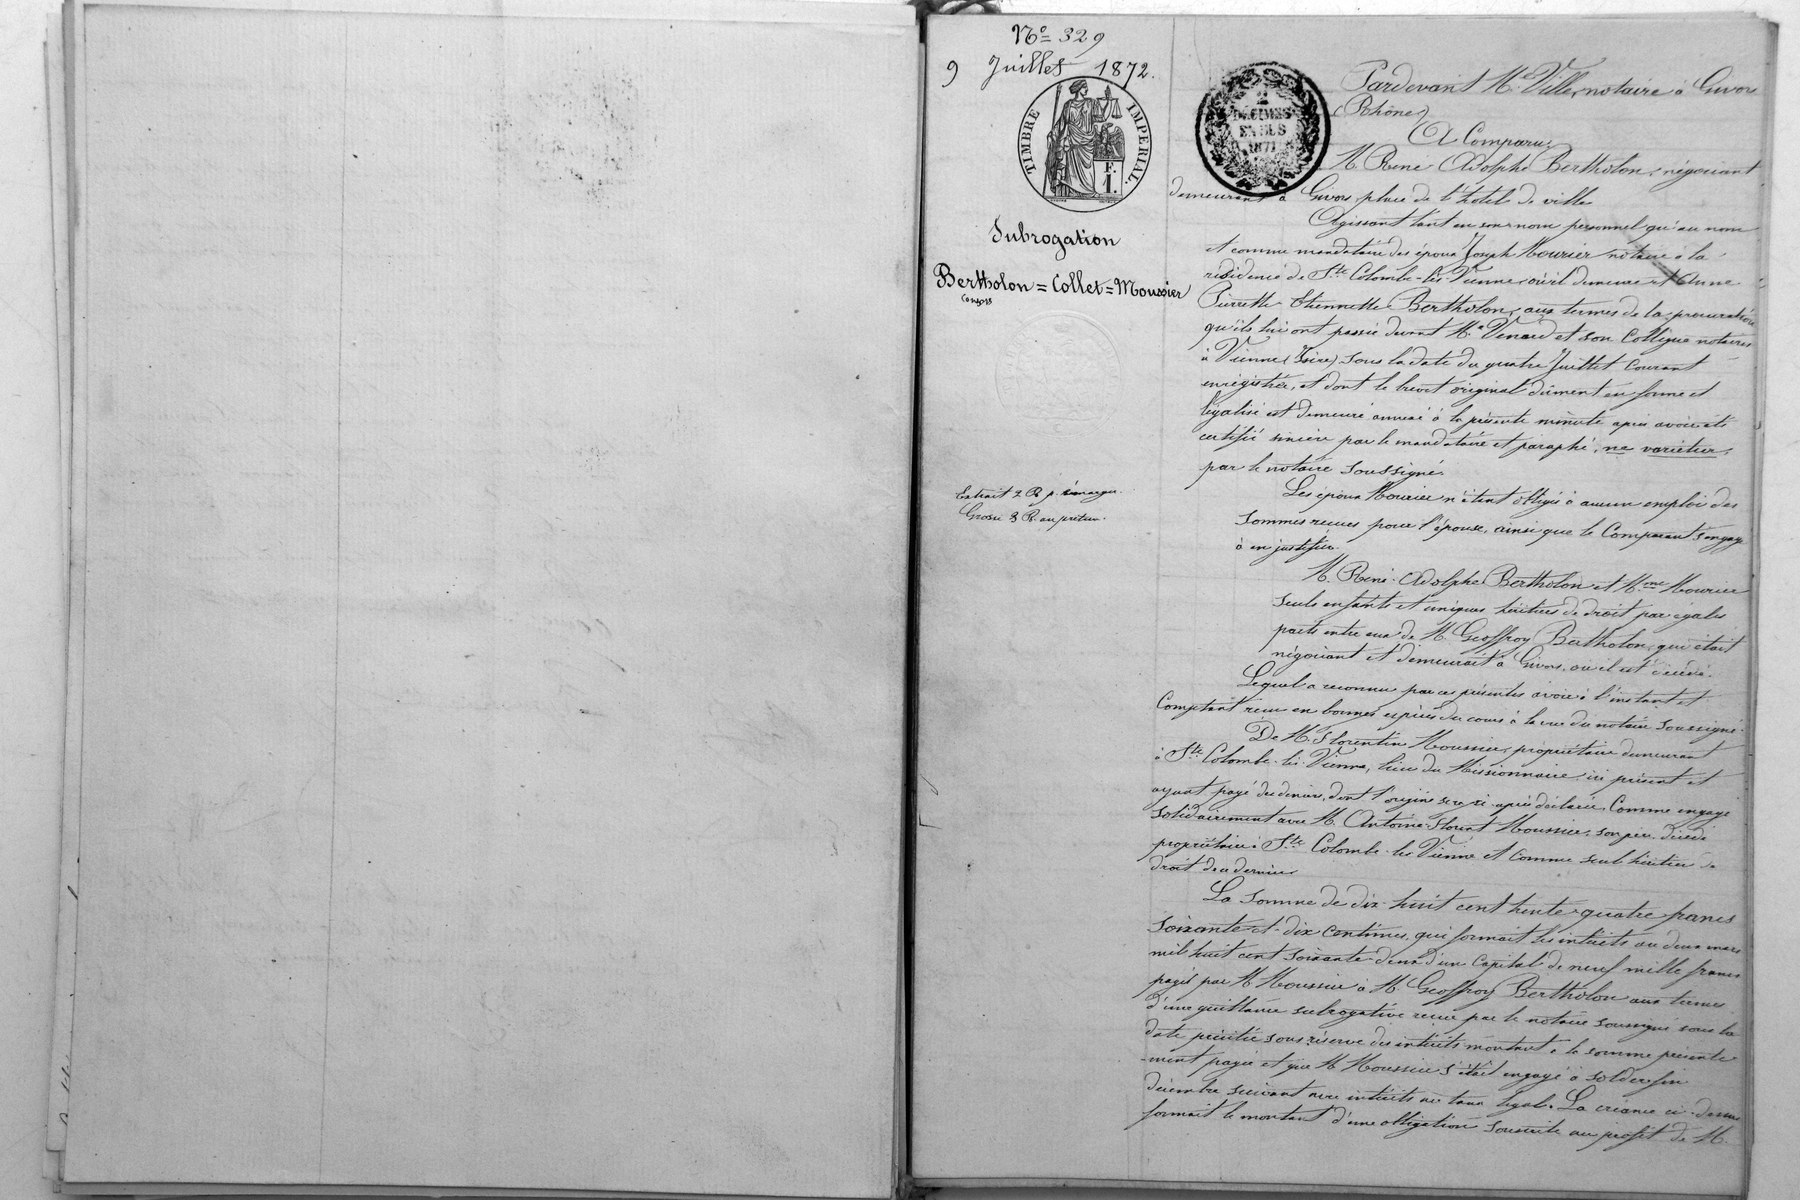 N.º 329
9 Juillet 1872.
TIMBRE IMPERIAL.
F.
1.
2
DÉCIMES
EN SUS
1871
Subrogation
Bertholon = Collet = Moussier
Consors
Extrait 2 R p. émarger.
Grosse 8 R
Pardevant Me Ville, notaire à Givors
(Rhône)
A Comparu:
M. René Adolphe Bertholon, négociant
demeurant à Givors place de l'hôtel de ville
Agissant tant en son nom personnel qu'au nom
et comme mandataire des époux Joseph Mourier notaire à la
résidence de Ste Colombe-lès-Vienne, où il demeure et Anne
Pierrette Etiennette Bertholon, aux termes de la procuration
qu'ils lui ont passée devant Me Venard et son Collègue notaires
à Vienne (Isère) sous la date du quatre Juillet courant
enregistrée, et dont le brevet original dûment en forme et
légalisé est demeuré annexé à la présente minute après avoir été
certifié sincère par le mandataire et paraphé, ne varietur,
par le notaire soussigné.
Les époux Mourier n'étant obligés à aucun emploi des
sommes reçues pour l'épouse, ainsi que le Comparant s'engage
à en justifier.
M. René-Adolphe Bertholon et Mme Mourier
seuls enfants et uniques héritiers de droit par égales
parts entre eux de M. Geoffroy Bertholon, qui était
négociant et demeurait à Givors, où il est décédé.
Lequel a reconnu par ces présentes avoir à l'instant et
Comptant reçu en bonnes espèces du cours à la vue du notaire soussigné
De M. Florentin Moussier, propriétaire demeurant
à Ste Colombe-lès-Vienne, lieu du Missionnaire ici présent et
ayant payé des deniers, dont l'origine sera ci-après déclarée, Comme engagé
solidairement avec M. Antoine Florent Moussier, son père décédé
propriétaire à Ste Colombe-lès-Vienne et comme seul héritier de
droit de ce dernier
La somme de dix-huit cent trente-quatre francs
soixante-et-dix centimes, qui formait les intérêts au deux mars
mil huit cent soixante-deux d'un capital de neuf mille francs
payés par M. Moussier à M. Geoffroy Bertholon aux termes
d'une quittance subrogative reçue par le notaire soussigné sous la
date précitée sous réserve des intérêts montant à la somme présente
-ment payée et que M. Moussier s'était engagé à solder fin
décembre suivant avec intérêts au taux légal. La créance ci-dessus
formait le montant d'une obligation souscrite au profit de M.